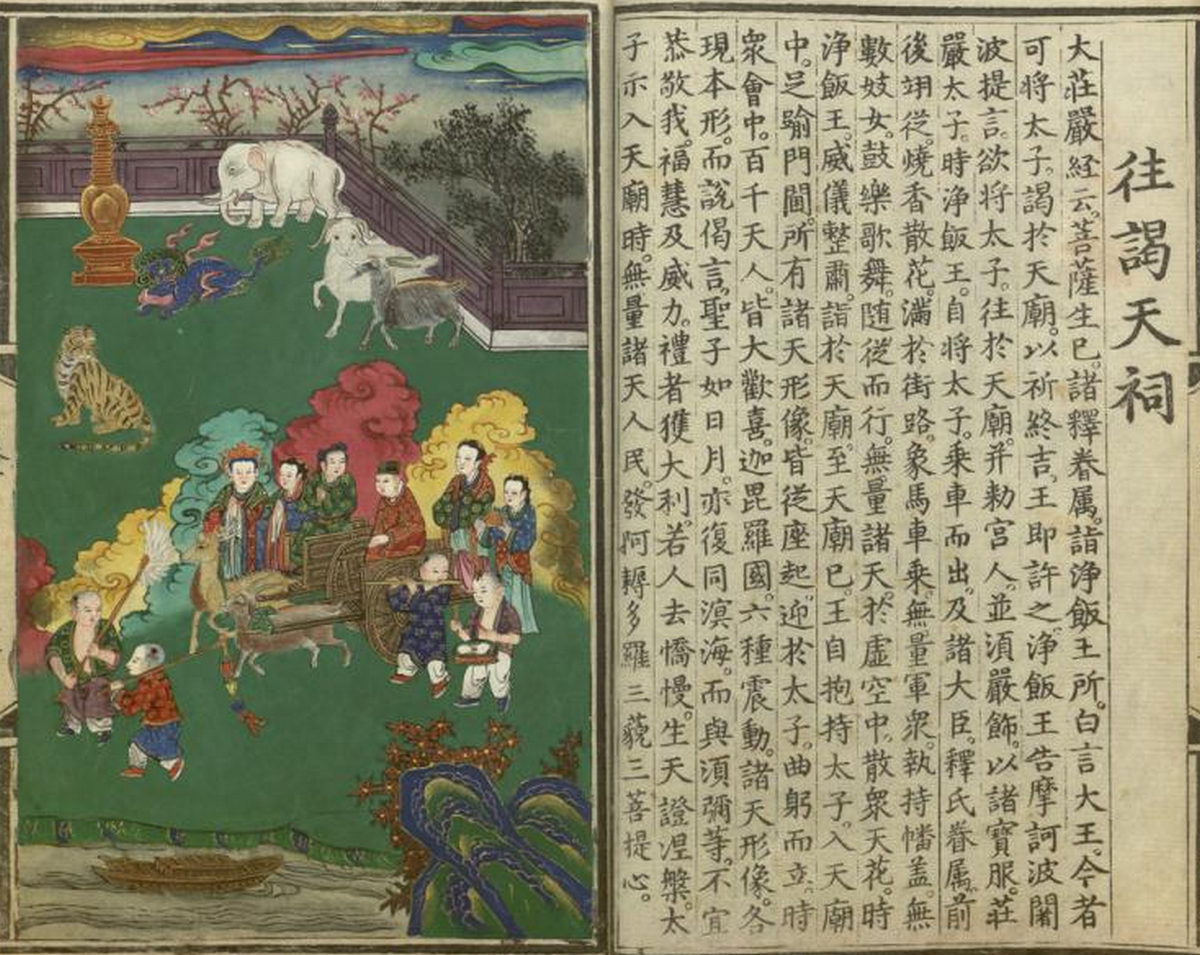 往謁天祠
大莊嚴経云。菩薩生已。諸釋眷属。詣淨飯王所。白言大王。今者
可将太子。謁於天廟。以祈終吉。王即許之。淨飯王告摩訶波闍
波提言。欲将太子。往於天廟。并勅宮人。並須嚴飾。以諸寶服。莊
嚴太子。時淨飯王。自将太子。乗車而出。及諸大臣。釋氏眷属。前
後翊從。焼香散花。滿於街路。象馬車乗。無量軍衆。執持幡盖。無
數妓女。鼓樂歌舞。随從而行。無量諸天。於虛空中。散衆天花。時
淨飯王。威儀整肅。詣於天廟。至天廟已。王自抱持太子。入天廟
中。足踰門閫。所有諸天形像。皆從座起。迎於太子。曲躬而立。時
衆會中。百千天人。皆大歡喜。迦毘羅國。六種震動。諸天形像。各
現本形。而說偈言。聖子如日月。亦復同溟海。而與須彌等。不宜
恭敬我。福慧及威力。禮者獲大利。若人去憍慢。生天證涅槃。太
子示入天廟時。無量諸天人民。發阿耨多羅三藐三菩提心。